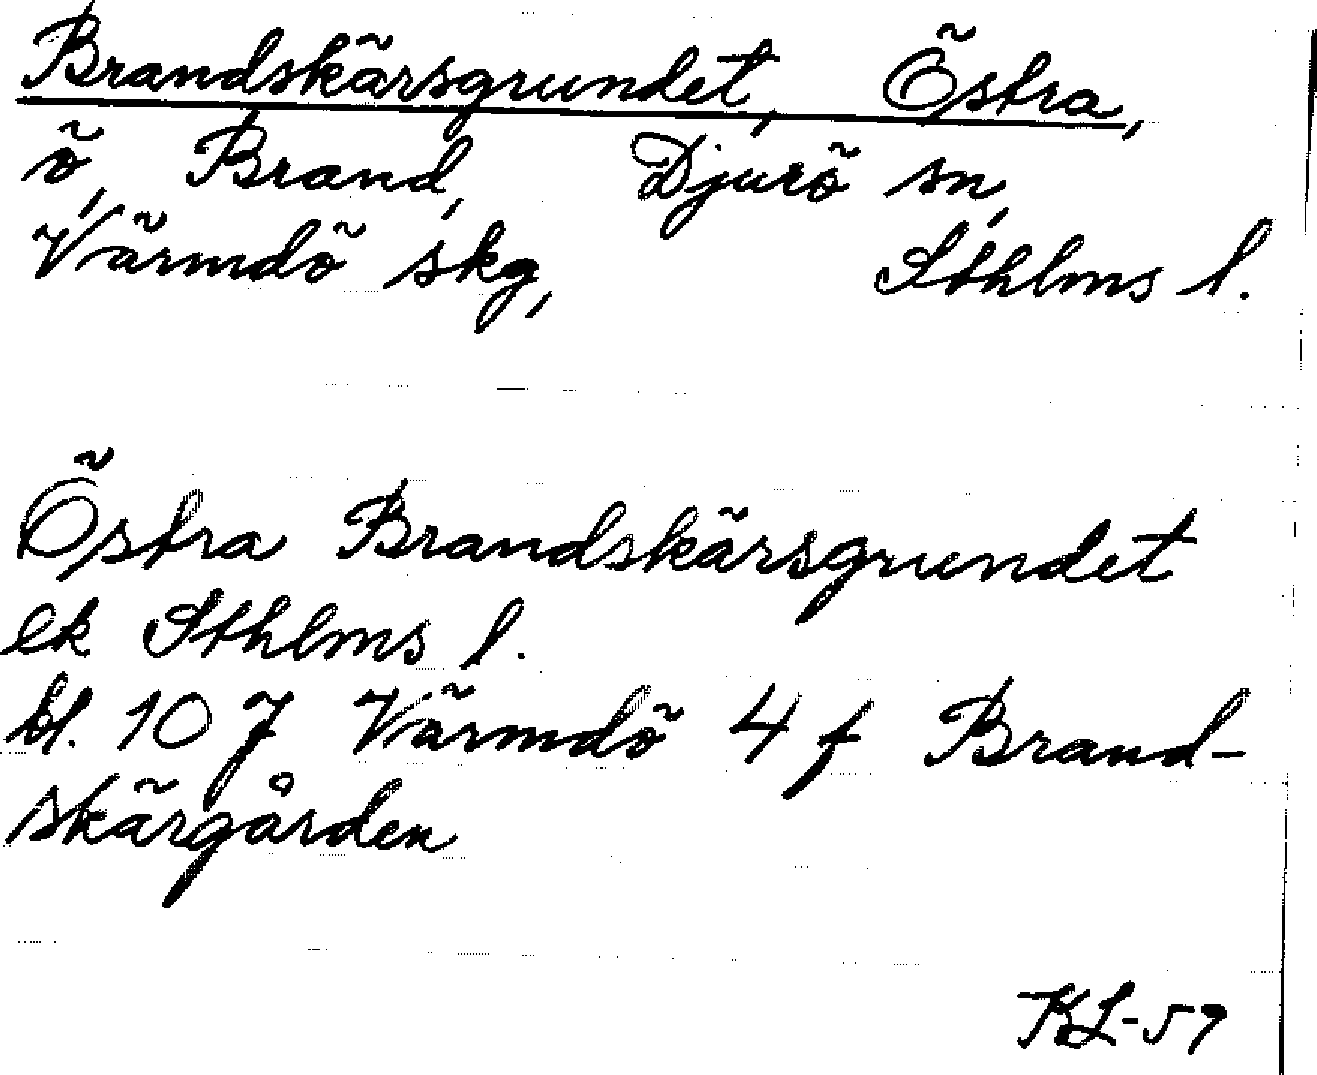 Brandskärsgrundet, Östra,
ö, Brand, Djurö sn,
Värmdö skg, Sthlms l.
Östra Brandskärsgrundet
ek Sthlms l.
bl. 107 Värmdö 4 f Brand-
skärgården
KL-59